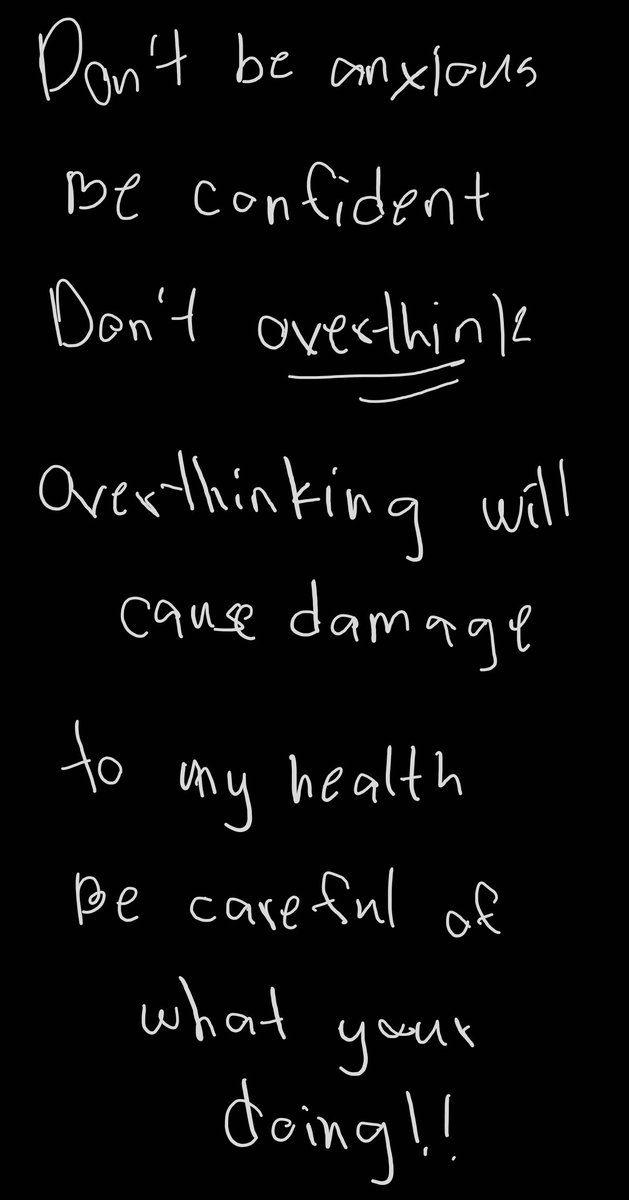 Don't be anxious
Be confident
Don't overthink
Overthinking will
cause damage
to my health
Be careful of
what your
doing!!